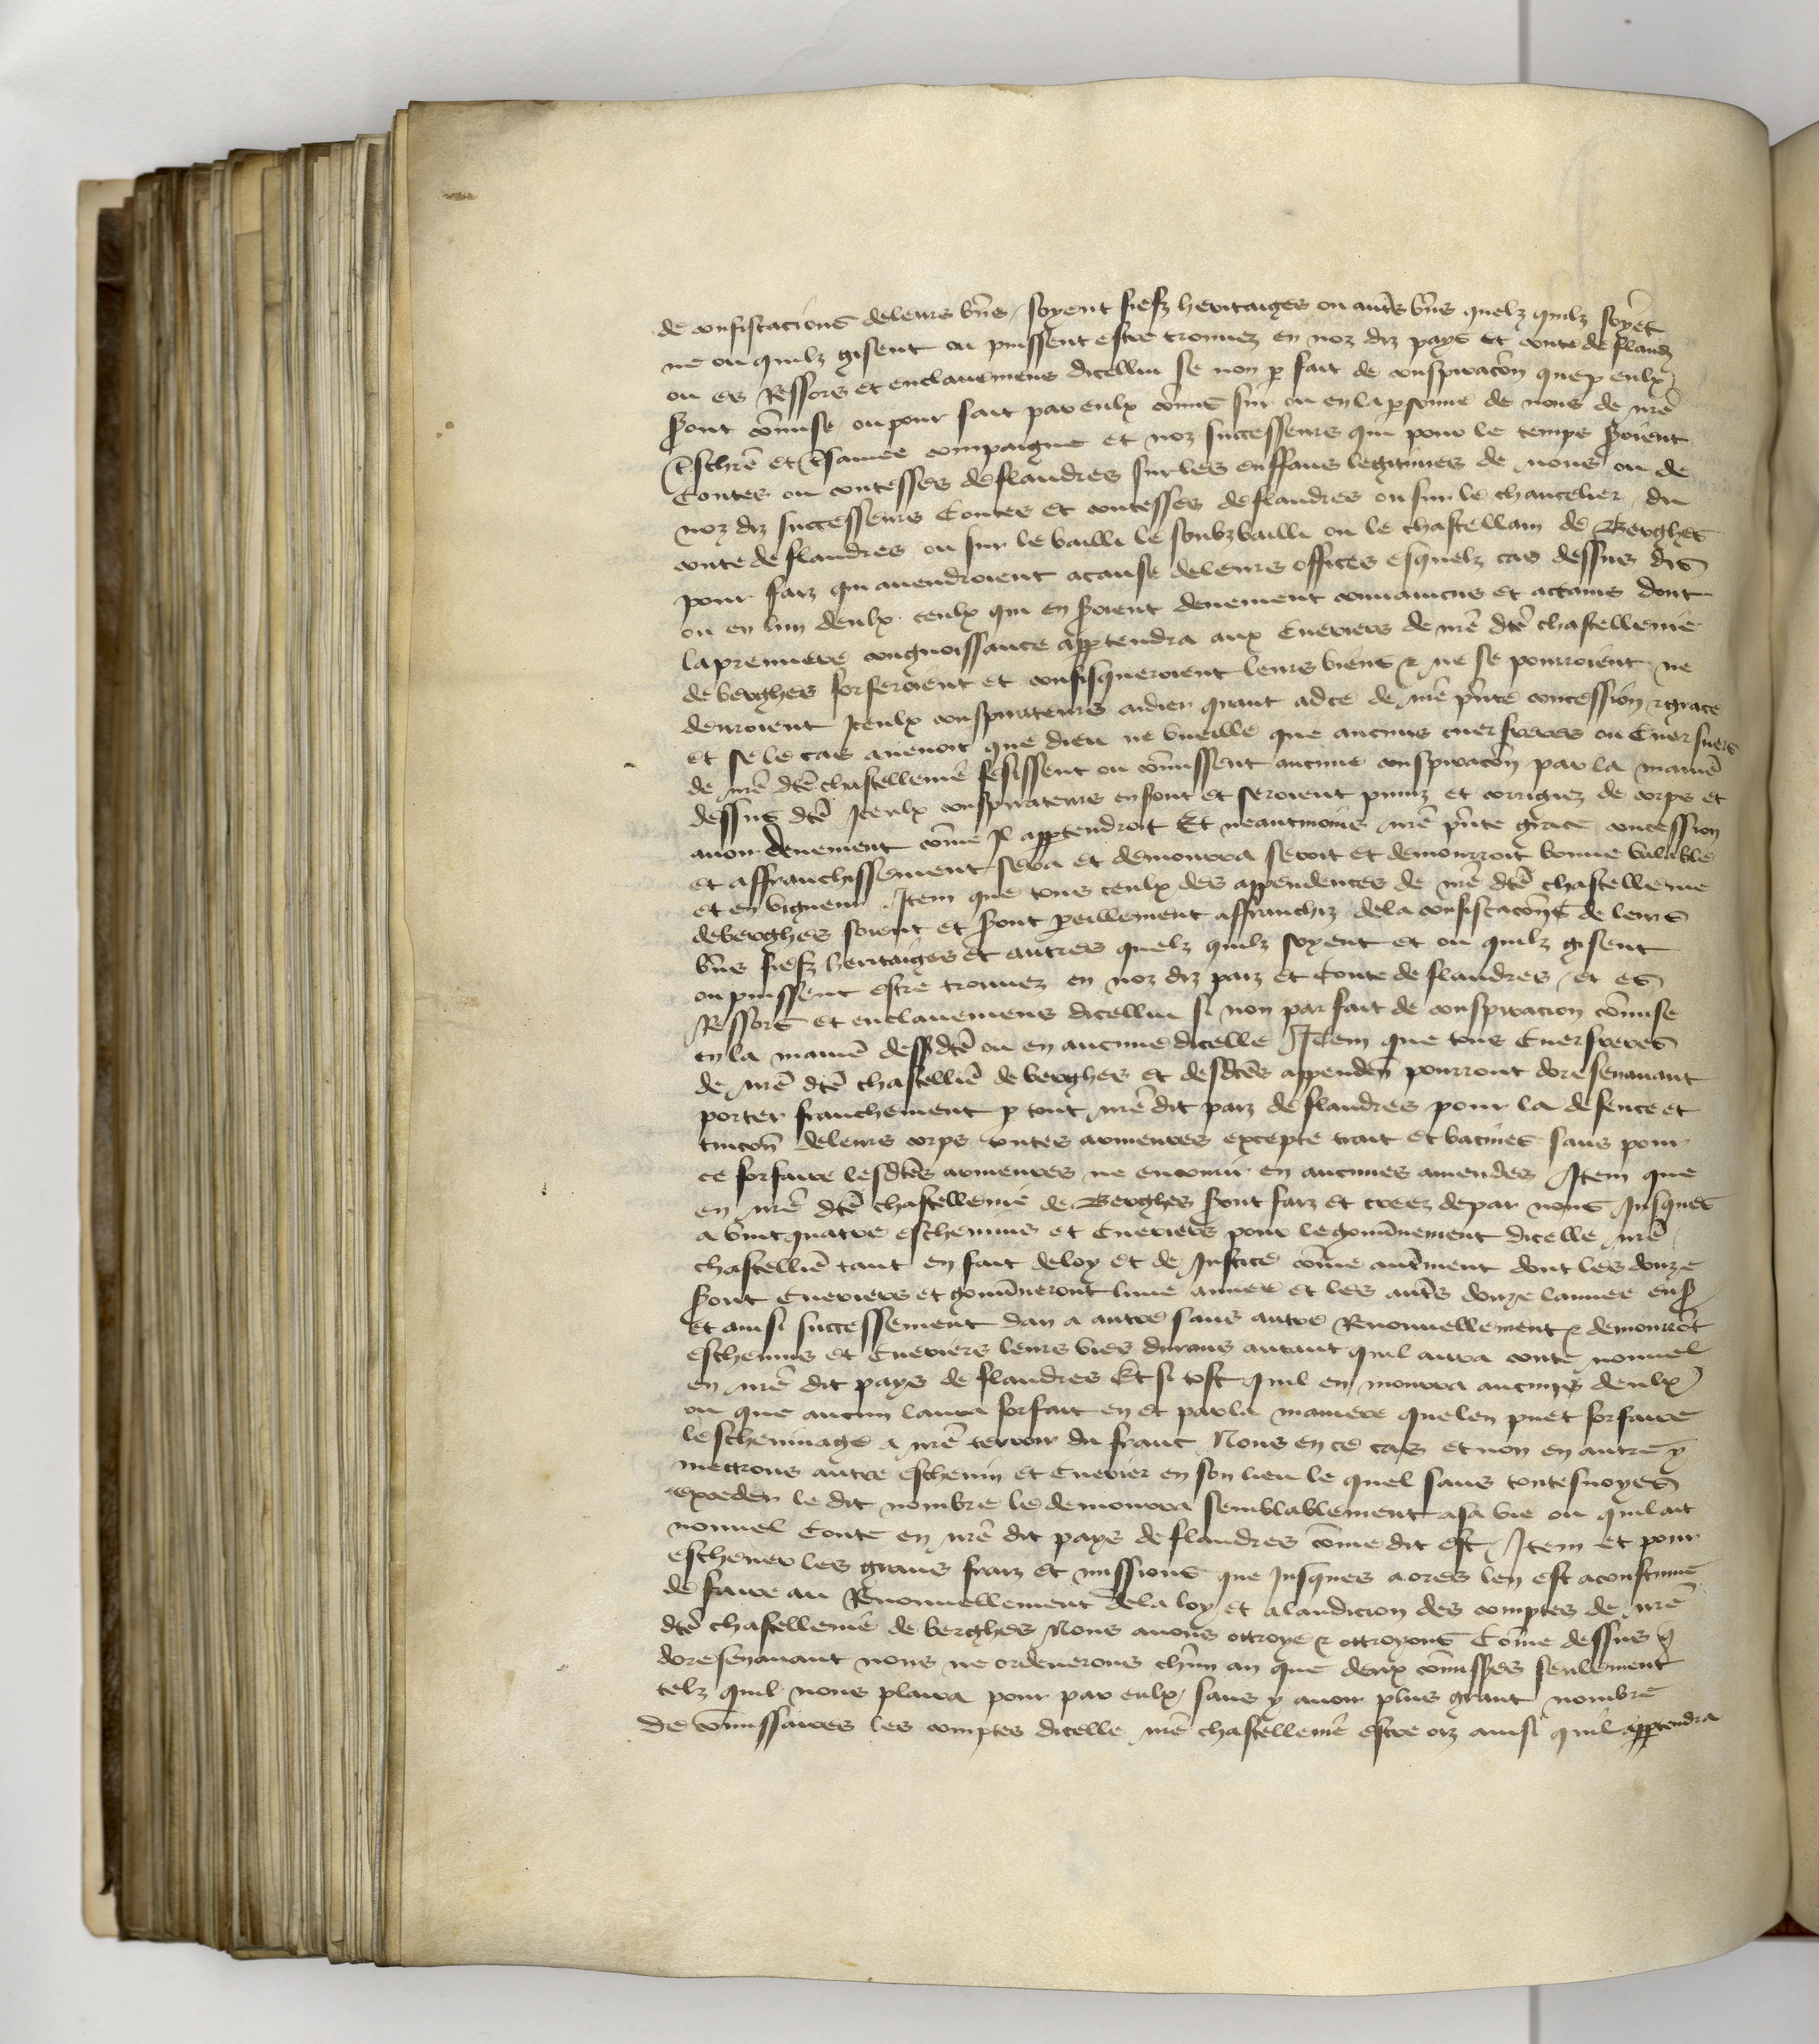 de confiscacions de leurs bñs, soyent fiefz heritaiges ou autẽs bñs quelz quilz soyẽt
ne ou quilz gisent ou puissent estre trouuez en noz diz pays et conte de flandz
ou es Ressors et enclauemens dicellui se non p fait de conspiracõn que p eulx
sont cõmise, ou pour fait par eulx cõmis sur ou en la psonne de nous de nrẽ
tschiẽ et tsamee compaigne et noz successeurs qui pour le temps seroient
Contes ou contesses de flandres sur les enffans legitimes de nous ou de
noz diz successeurs Contes et contesses de flandres ou sur le chancelier du
conte de flandres, ou sur le bailli le soubzbailli ou le chastellain de Berghes
pour faiz qui auendroient a cause de leurs offices esquelz cas dessus dis
ou en lun deulx ceulx qui en seroient deuement conuaincus et actains dont
la premiere congnoissance apptendra aux Cueriers de nrẽ dtẽ chastellenie
de berghes forferoient et confisqueroient leurs biens & ne se pourroient ne
deuroient Iceulx conspirateurs aidier quant ad ce de nrẽ pñte concession & grace
et se le cas auenoit que dieu ne vueille que aucuns cuerfreres ou Cuersuers
de nrẽ dtẽ chastellenie fesissent ou cõmissent aucune conspiracõn par la maniẽ
dessus dtẽ Iceulx conspirateurs en sont et seroient puniz et corrigiez de corps et
auoir deuement cõme Il apptendroit Et neantmoins nrẽ pñte grace concession
et affranchissement sera et demourra seroit et demourroit bonne valable
et en vigueur. Item que tous ceulx des appendences de nrẽ dtẽ chastellenie
de berghes soient et sont peillement affranchiz de la confiscacõns de leurs
bñs fiefz heritaiges et autres quelz quilz soyent et ou quilz gisent
ou puissent estre trouuez en noz diz paiz et Conte de flandres, et es
Ressors et enclauemens dicellui si non par fait de conspiracion cõmise
en la maniẽ dessdtẽ ou en aucune dicelle Item que tous Cuerfreres
de nrẽ dtẽ chastelliẽ de berghes et desdtẽs appendeñ pourront doresenauant
porter franchement p tout nrẽ dit paiz de flandres pour la defence et
tuicõn de leurs corps toutes armeures excepte trait et bacines sans pour
ce forfaire lesdtẽs armeures ne encourir en aucunes amendes Item que
en nrẽ dtẽ chastellenie de Berghes sont faiz et creez de par nous Jusques
a vint quatre escheuins et Cueriers pour le gouũnement dicelle nrẽ
chastelliẽ tant en fait de loy et de Justice cõme autẽment dont les douze
sont Cueriers et gouũneront lune annee et les autẽs douze lannee ens
Et ainsi successement dan a autre sans autre Renouuellement & demourrõt
escheuins et Cueriers leurs vies durans autant quil aura conte nouuel
en nrẽ dit pays de flandres Et si tost quil en mourra aucuns deulx
ou que aucun laura forfait en et par la maniere que len puet forfaire
lescheuinage a nrẽ terroir du franc Nous en ce cas et non en autre y
mectrons autre escheuin et Cuerier en son lieu le quel sans toutesuoyes
exceder le dit nombre le demourra semblablement a sa vie ou quil ait
nouuel Conte en nrẽ dit pays de flandres cõme dit est, Item et pour
escheuer les grans fraiz et missions que Jusques a ores len est acoustume
de faire au Renouuellement de la loy et a laudicion des comptes de nrẽ
dtẽ chastellenie de berghes Nous auons ottroye & ottroyons Cõme dessus q
doresenauant nous ne ordenerons chũn an que deux cõmisses seulement
telz quil nous plaira pour par eulx, sans y auoir plus grant nombre
de cõmissaires les comptes dicelle nrẽ chastellenie estre oiz ainsi quil apptendra